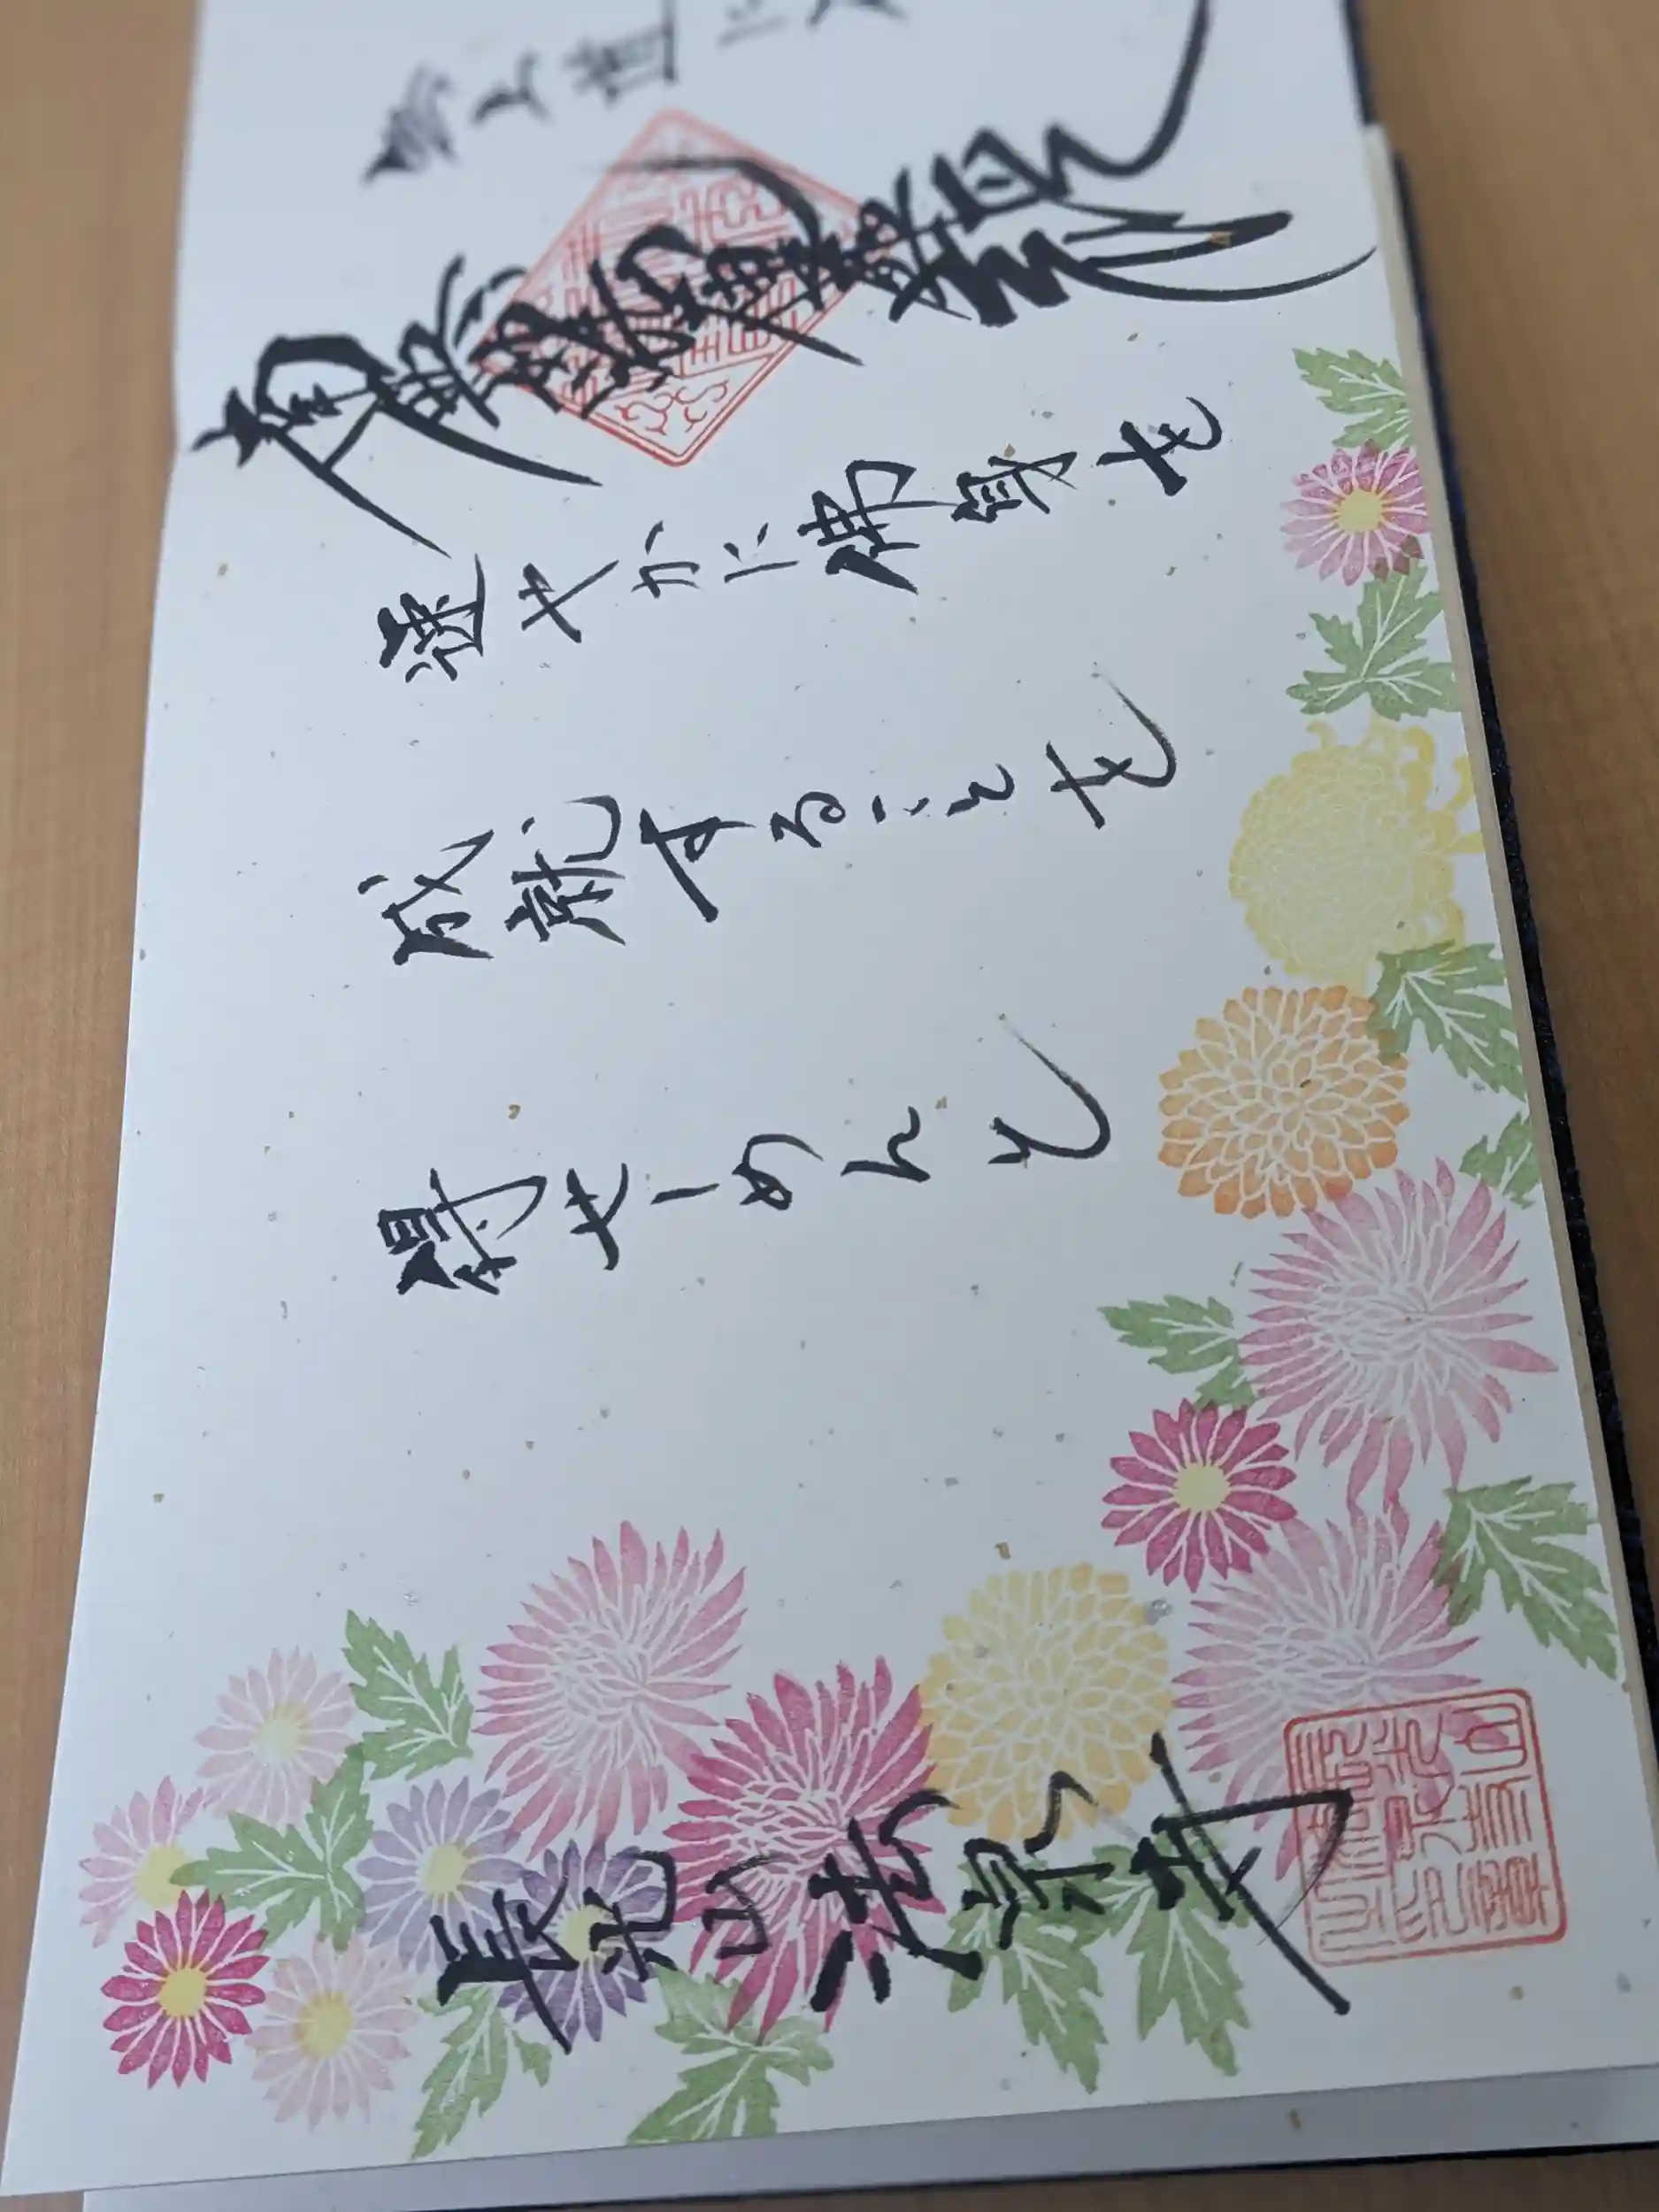 無上道に
南無妙法蓮華経
速やかに佛身を
成就することを
得せしめんと
長光山